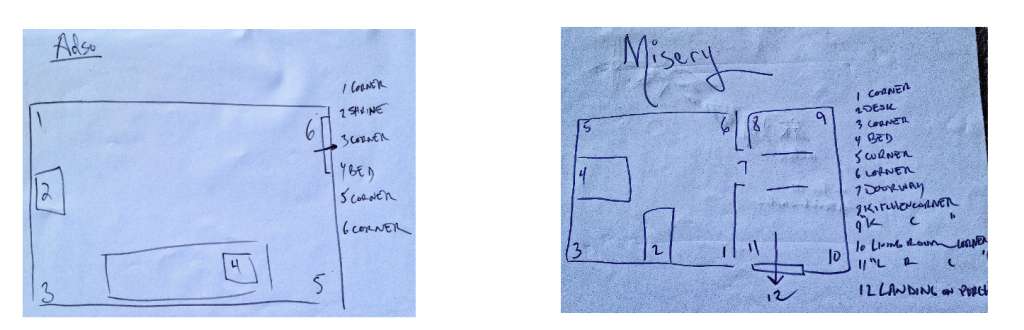 Adso
1 CORNER
2 SHRINE
3 CORNER
4 BED
5 CORNER
6 CORNER
1
6
2
4
3
5
Misery
1 CORNER
2 DESK
3 CORNER
4 BED
5 CORNER
6 CORNER
7 DOORWAY
8 KITCHEN CORNER
9 " K C "
10 LIVING ROOM CORNER
11 " L R C "
12 LANDING ON PORCH
5
6
8
9
4
7
3
2
1
11
10
12